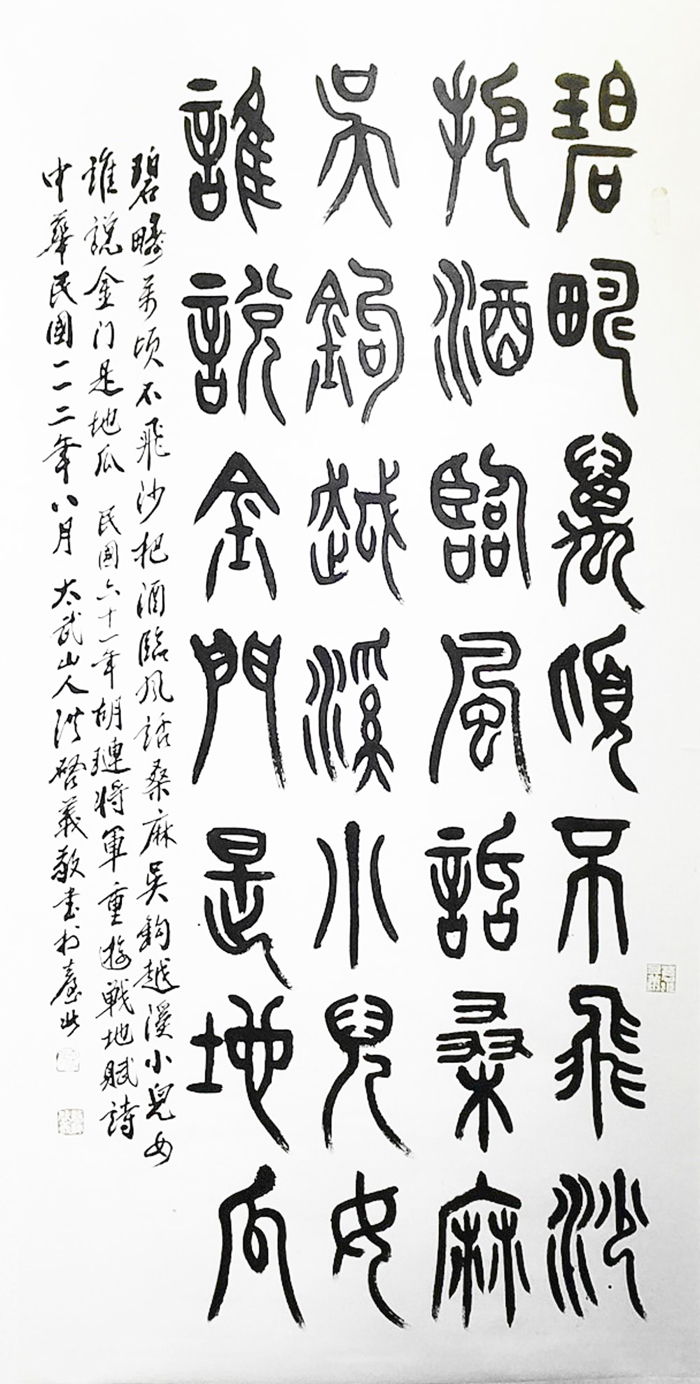 碧疇萬頃不飛沙
把酒臨風話桑麻
吳鉤越溪小兒女
誰說金門是地瓜
碧疇萬頃不飛沙把酒臨風話桑麻吳鉤越溪小兒女
誰說金门是地瓜 民國六十一年胡璉將軍重遊戰地賦詩
中華民國一一二年八月 太武山人洪啓義敬書於臺北